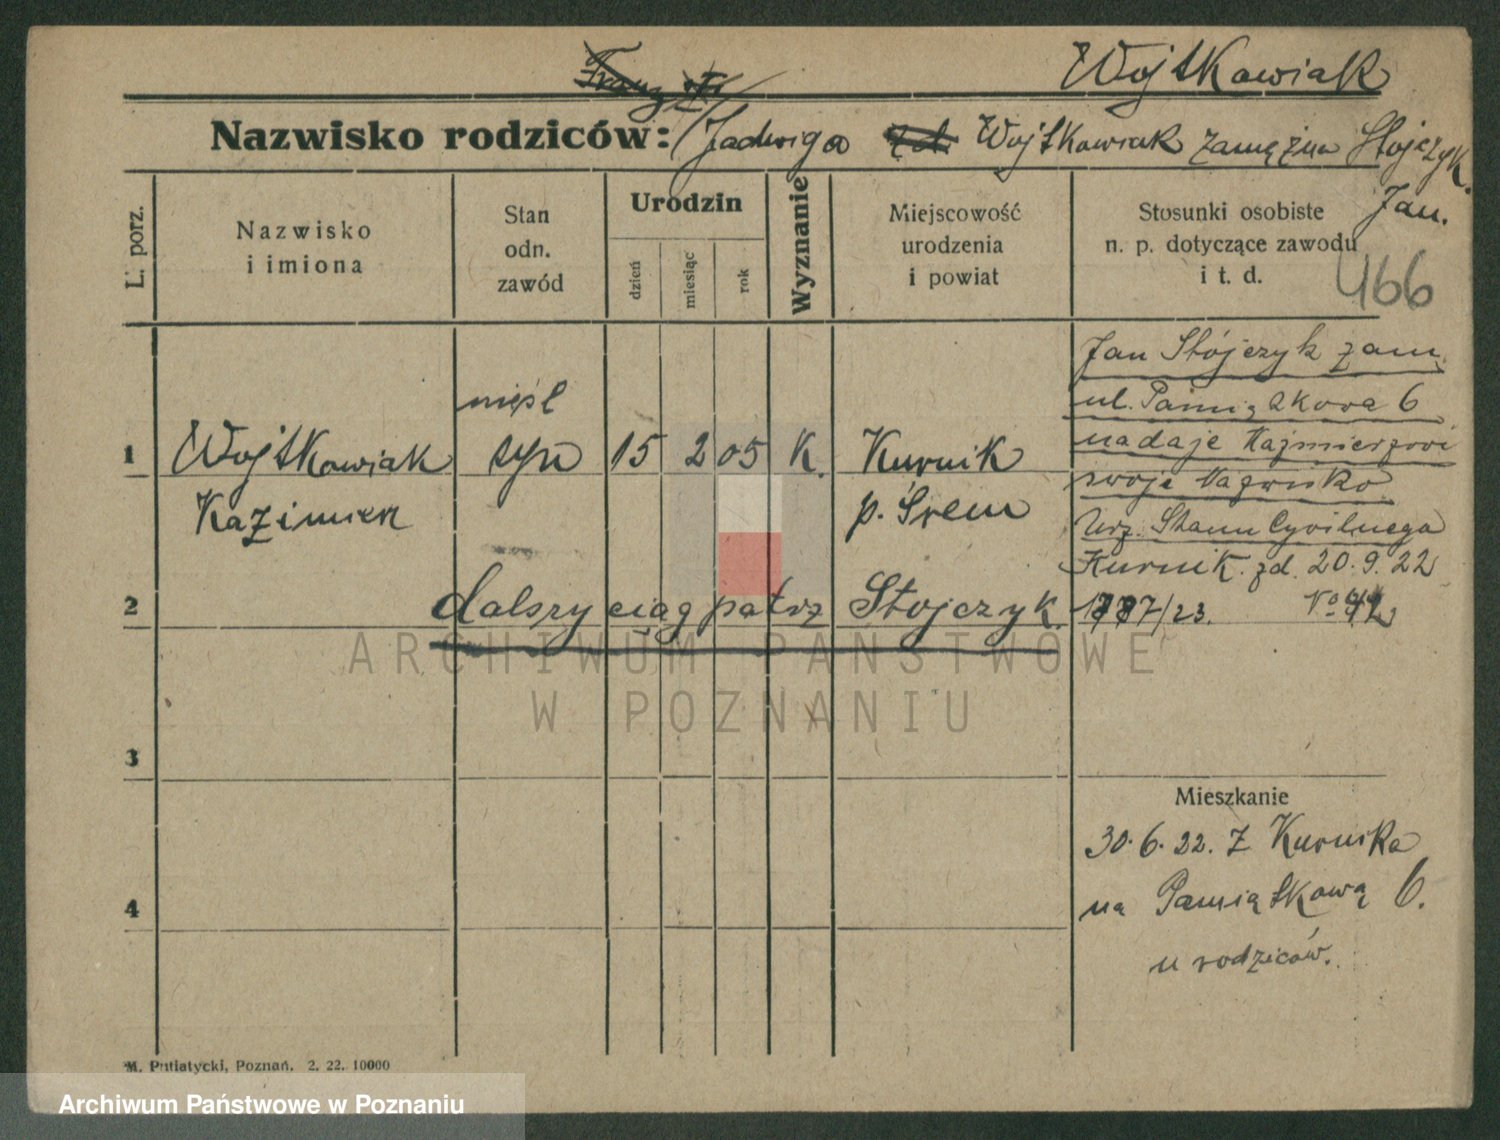 Wojtkowiak
Nazwisko rodziców: Jadwiga Wojtkowiak zamężna Stójczyk.
Jan.
L. porz.
Nazwisko
i imiona
Stan
odn.
zawód
Urodzin
dzień
miesiąc
rok
Wyznanie
Miejscowość
urodzenia
i powiat
Stosunki osobiste
n. p. dotyczące zawodu
i t. d.
466
1
Wojtkowiak
Kazimierz
nieśl
syn
15 2 05 K.
Kurnik
p. Śrem
Jan Stójczyk zam.
ul. Pamiątkowa 6
nadaje Kaźmierzowi
swoje Nazwisko
Urz. Stanu Cyvilnego
Kurnik. zd. 20.9.22
2
dalszy ciąg patrz Stojczyk.
1777/23. No
ARCHIWUM PAŃSTWOWE
W POZNANIU
3
Mieszkanie
30.6.22. Z Kurnika
na Pamiątkową 6.
u rodziców.
4
M. Putiatycki, Poznań. 2. 22. 10000
Archiwum Państwowe w Poznaniu